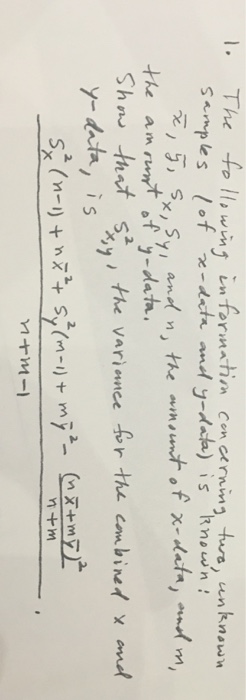 1. The following information concerning two, unknown
samples (of x-data and y-data) is known:
x̄, ȳ, Sx, Sy, and n, the amount of x-data, and m,
the amount of y-data.
Show that S²x,y, the variance for the combined x and
y-data, is
Sx²(n-1) + nx̄² + Sy²(m-1) + mȳ² - (nx̄+mȳ)²/n+m
n+m-1 .